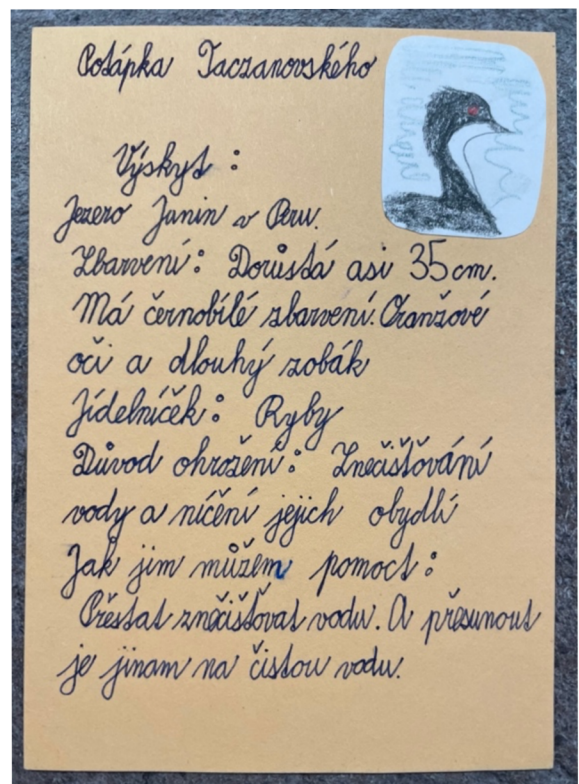 Potápka Taczanovského
Výskyt :
Jezero Junin v Peru.
Zbarvení : Dorůstá asi 35 cm.
Má černobílé zbarvení. Oranžové
oči a dlouhý zobák
Jídelníček : Ryby
Důvod ohrožení : Znečišťování
vody a ničení jejich obydlí
Jak jim můžem pomoct :
Přestat znečišťovat vodu. A přesunout
je jinam na čistou vodu.